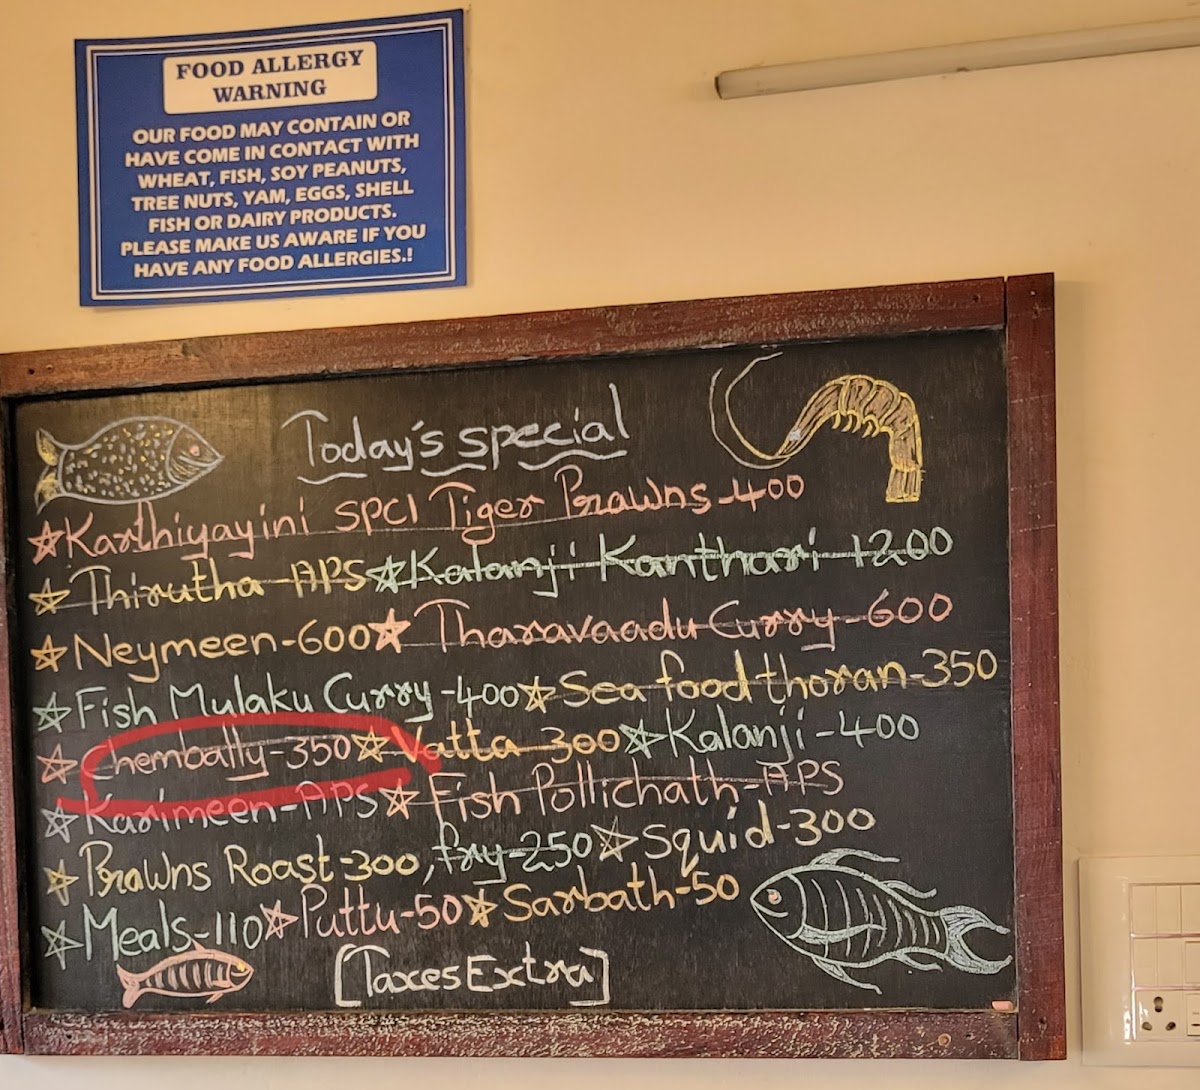 FOOD ALLERGY
WARNING
OUR FOOD MAY CONTAIN OR
HAVE COME IN CONTACT WITH
WHEAT, FISH, SOY PEANUTS,
TREE NUTS, YAM, EGGS, SHELL
FISH OR DAIRY PRODUCTS.
PLEASE MAKE US AWARE IF YOU
HAVE ANY FOOD ALLERGIES.!
Today's special
☆Karthiyayini SPCl Tiger Prawns-400
☆Thirutha-APS☆Kalanji Kanthari 1200
☆Neymeen-600☆Tharavaadu Curry-600
☆Fish Mulaku Curry-400☆Sea food thoran-350
☆Chembally-350☆Vatta 300☆Kalanji-400
☆Karimeen-APS☆Fish Pollichath-APS
☆Prawns Roast-300, fry-250☆Squid-300
☆Meals-110☆Puttu-50☆Sarbath-50
[Taxes Extra]